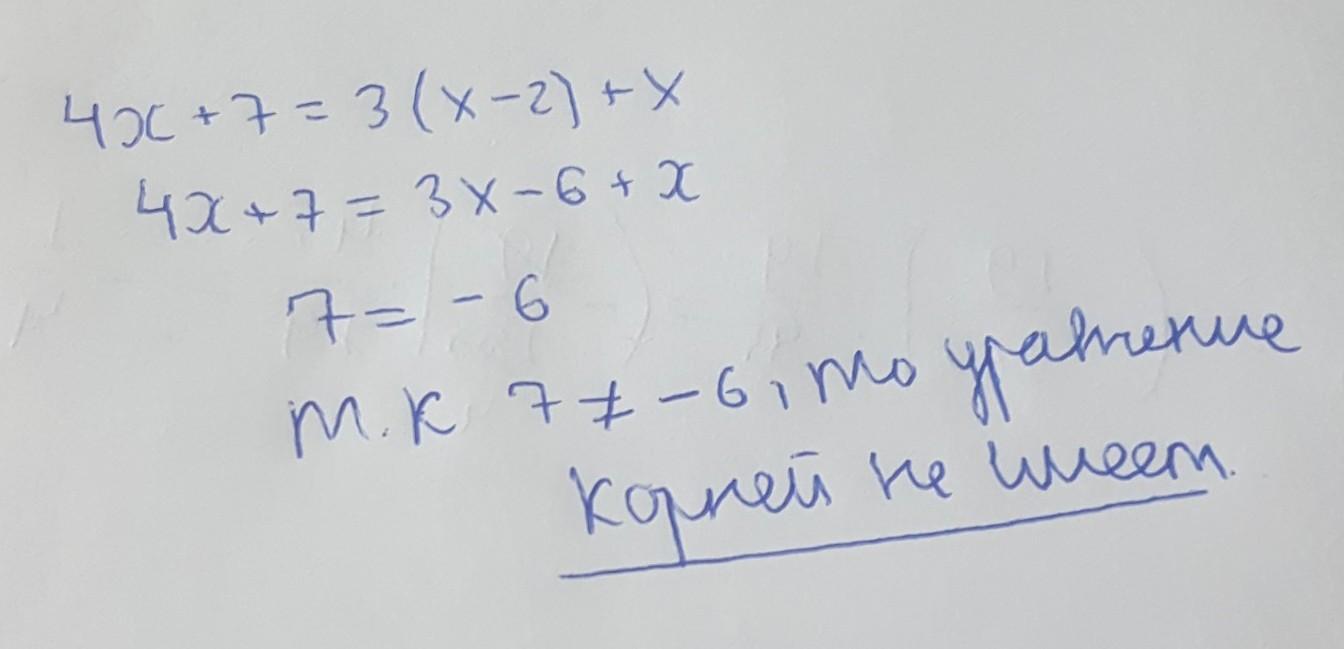 4x+7=3(x-2)+x
4x+7=3x-6+x
7=-6
т.к 7≠-6, то уравнение
корней не имеет.